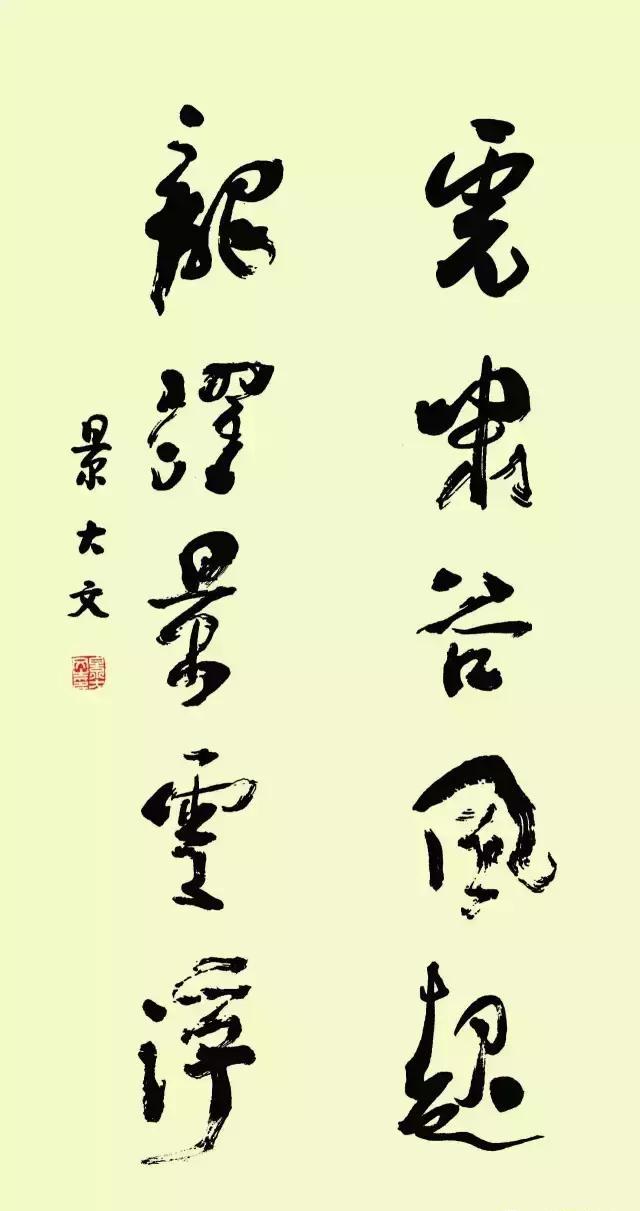 虎嘯谷風起
龍躍景雲浮
景大文